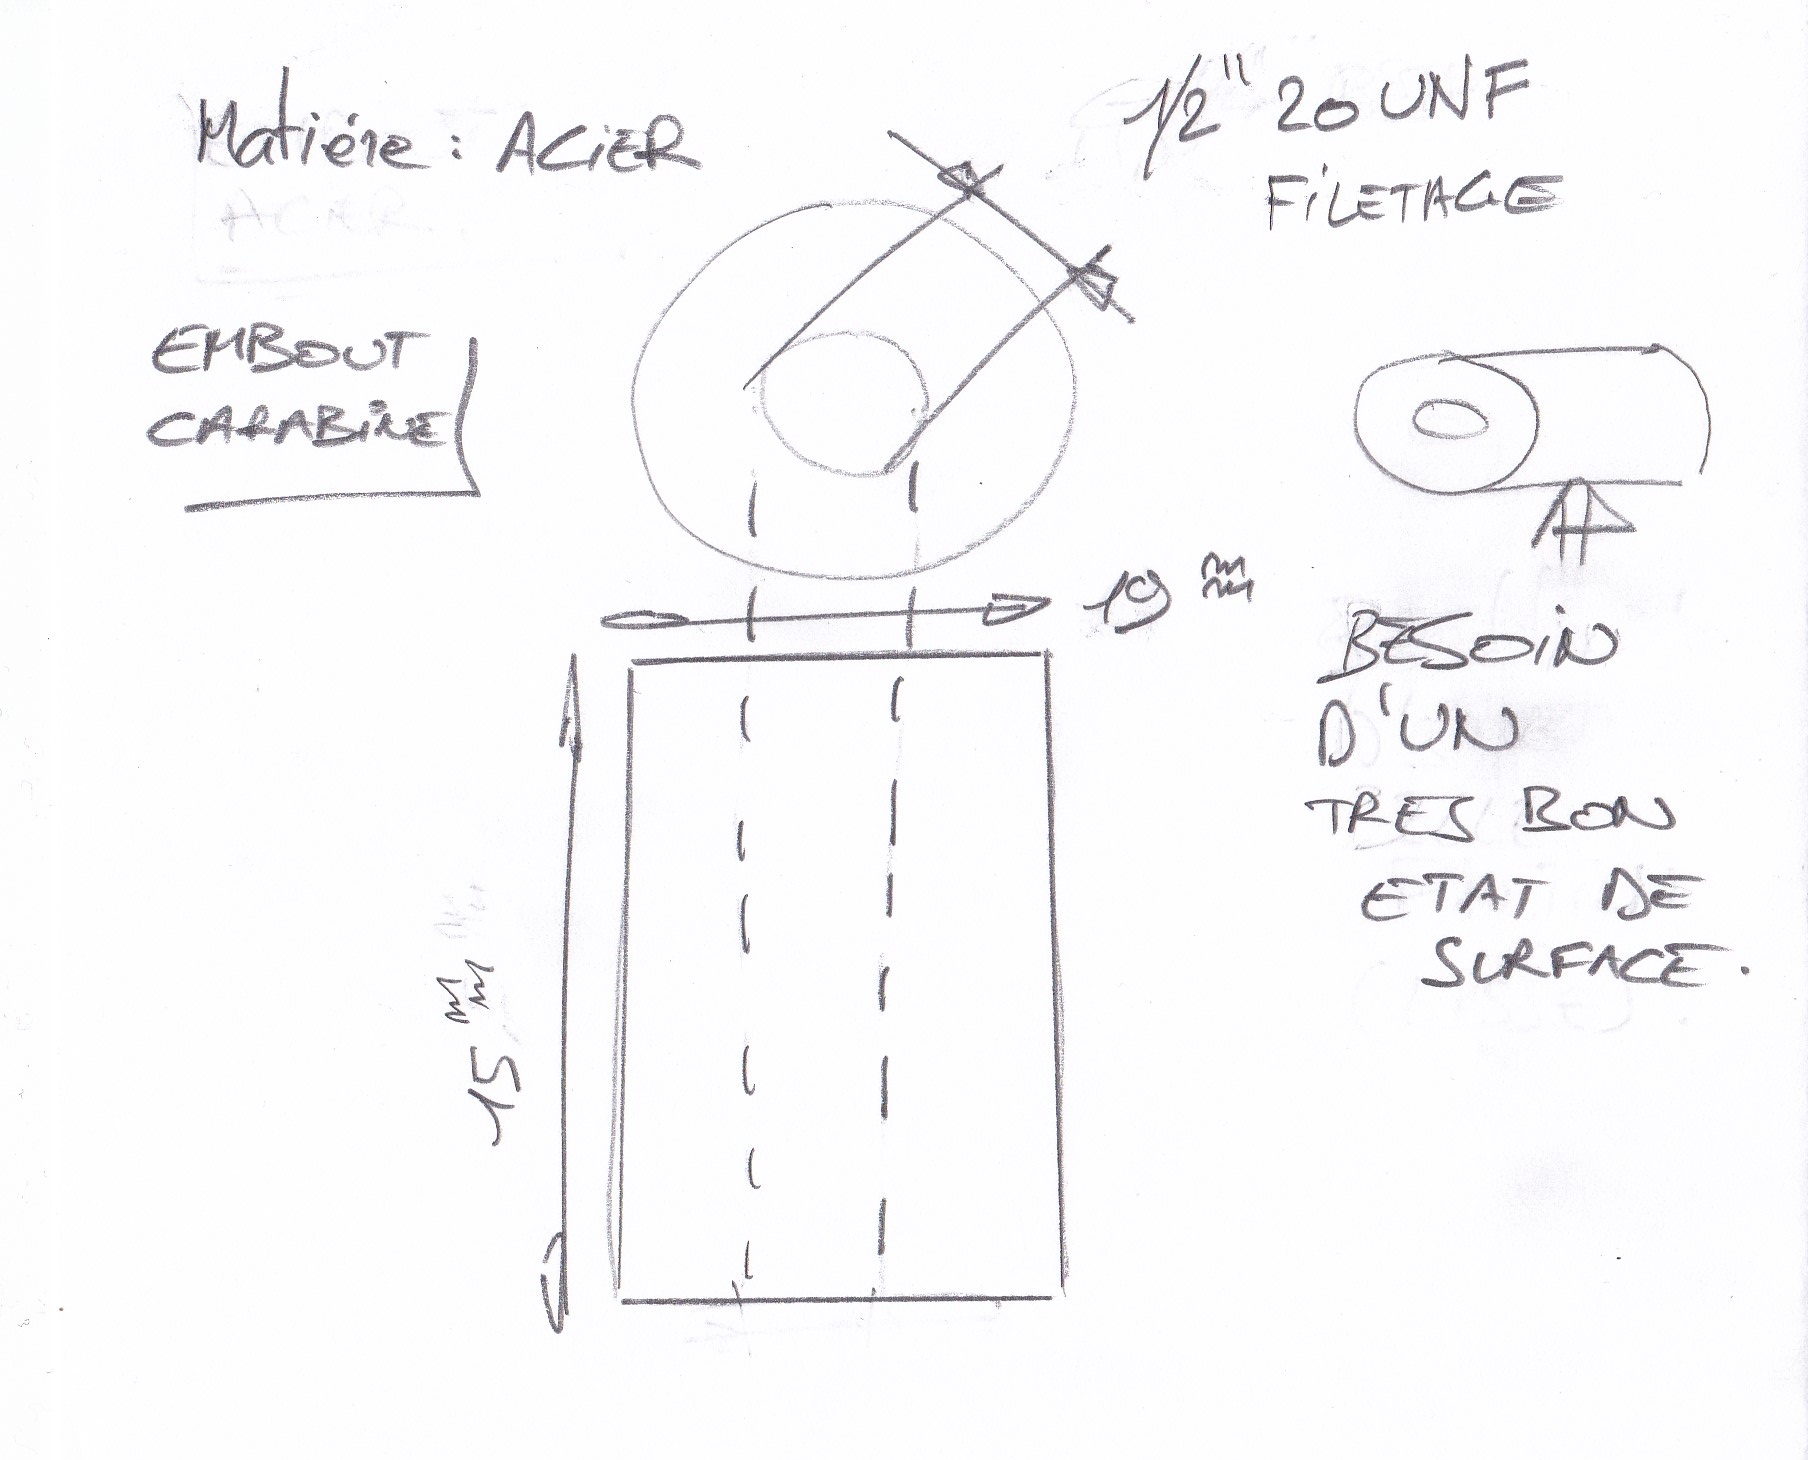 Matiére : ACiER
1/2" 20 UNF
FiLETAGE
EMBOUT
CARABiNE
19 mm
15 mm
BESOiN
D'UN
TRES BON
ETAT DE
SURFACE.